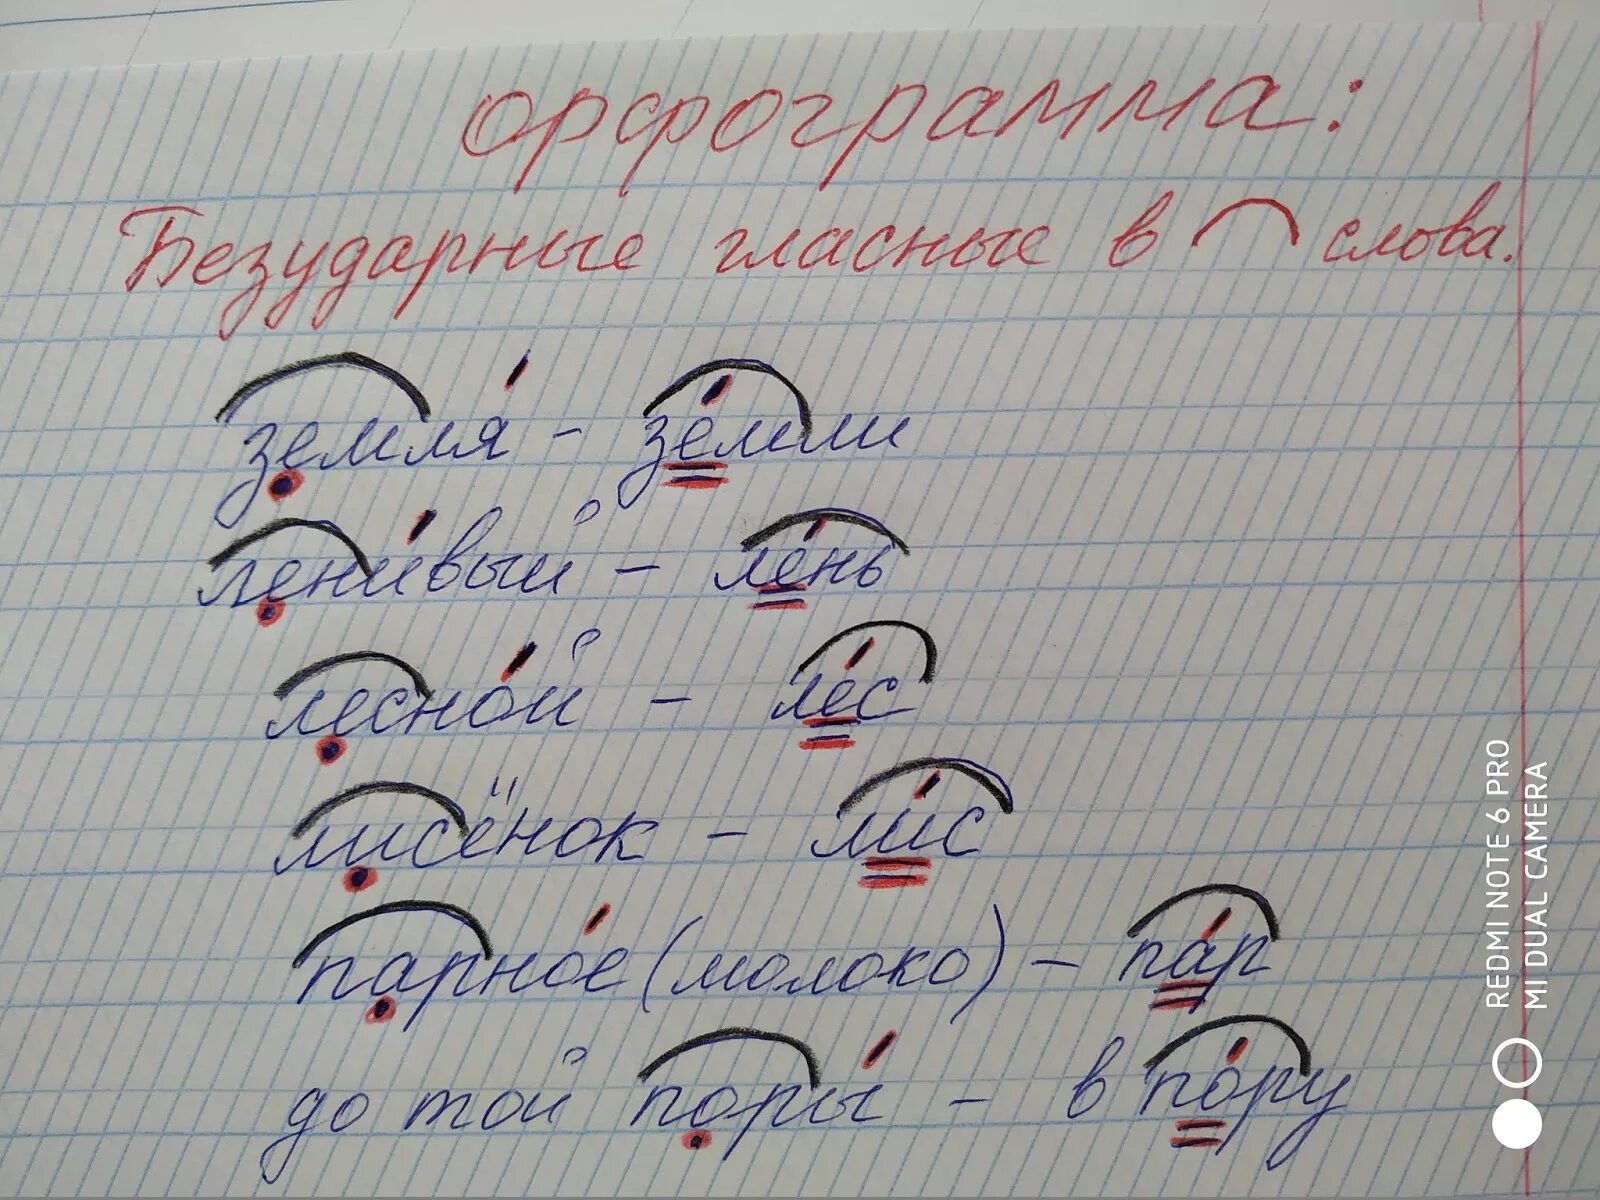 орфограмма:
Безударные гласные в слова.
земля́ - зе́мли
лени́вый - ле́нь
лесно́й - ле́с
лисёнок - ли́с
парно́е (молоко) - па́р
до той поры́ - в по́ру
REDMI NOTE 6 PRO
MI DUAL CAMERA